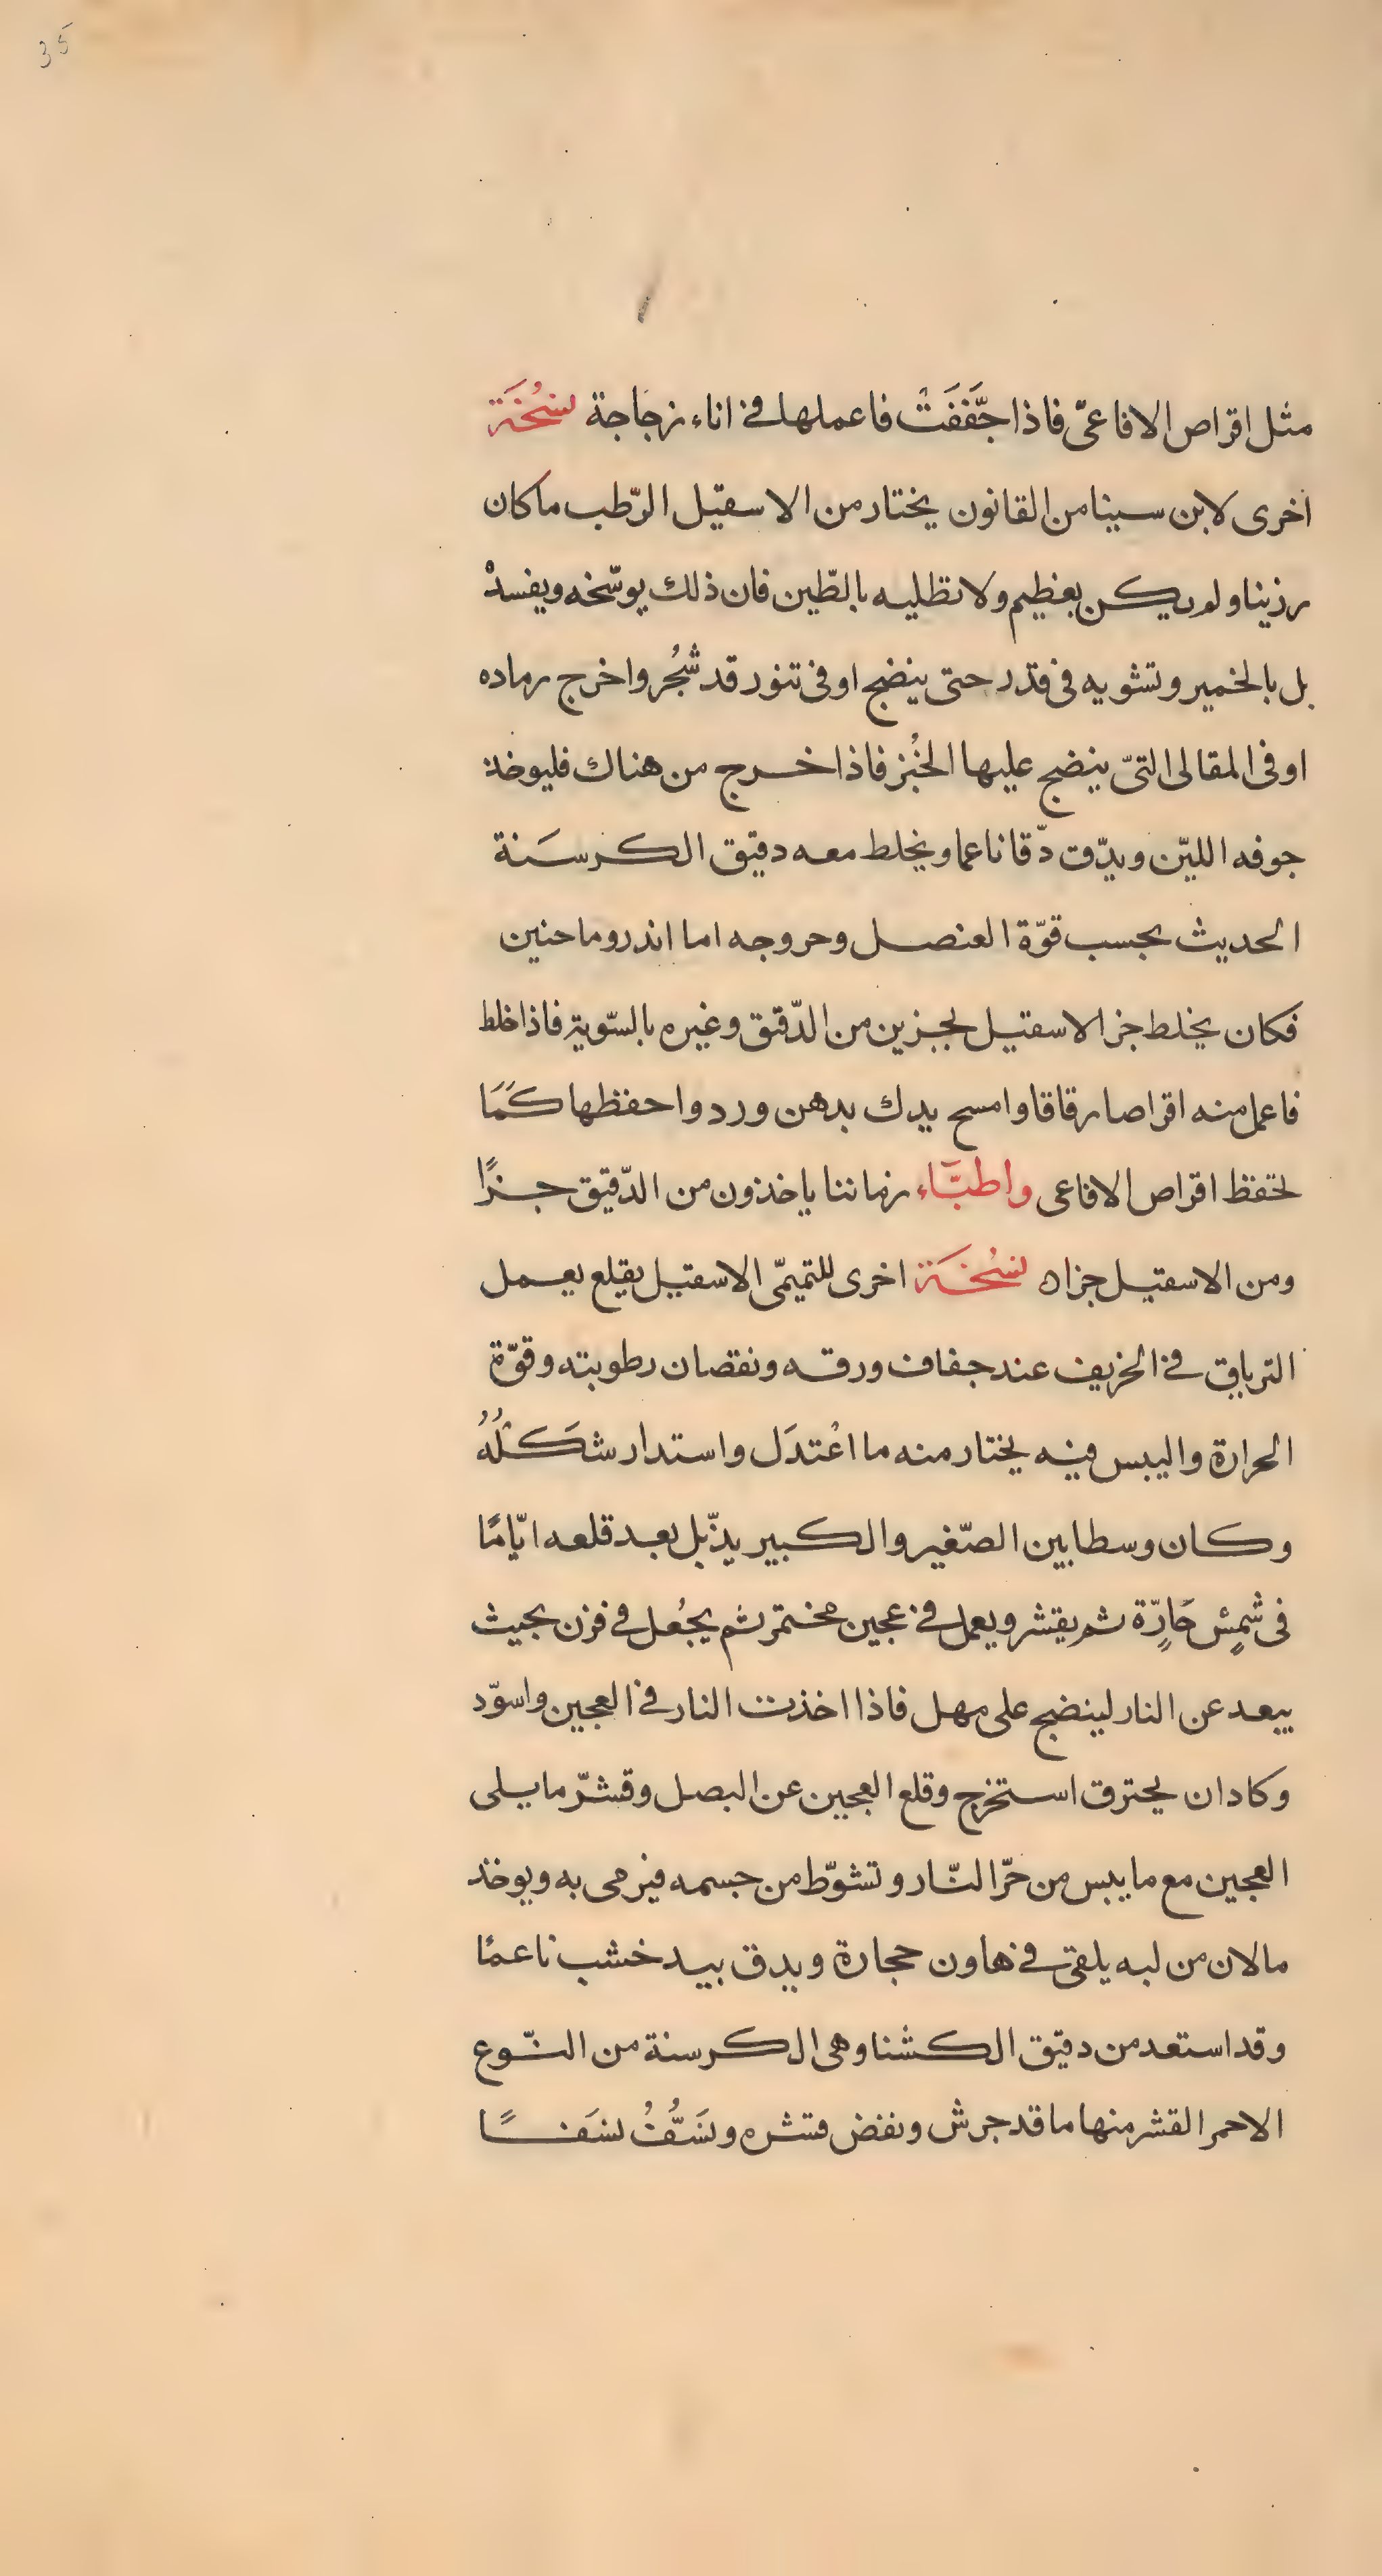 35
مثل اقراص الافاعىّ فاذا جّفَفَتْ فاعملها فى اناء زجاجة نسُخَة
اخرى لابن سينا من القانون يختار من الاسقيّل الرّطب ماكان
رزينا ولم يكن بعظيم ولا تطليه بالطّين فان ذلك يوسّخه ويفسدْ
بل بالخمير وتشويه فى قدر حتى ينضج او فى تنور قد شُجُر واخرج رماده
او فى المقالى التىّ ينضج عليها الخُبْز فاذا خرج من هناك فليوخذ
جوفه الليّن ويدّق دّقا ناعما ويخلط معه دقيق الكرسَنة
الحديث بحسب قوّة العنصل وحروجه اما اندروماحنين
فكان يخلط جز الاسقيل بجزين من الدّقيق وغيره بالسّوية فاذا خلط
فاعمل منه اقراصا رقاقا وامسح يدك بدهن ورد واحفظها كَمَا
تحتفظ اقراص الافاعى واطبَّاء زماننا ياخذون من الدّقيق جزًا
ومن الاسقيل جزاه نسُخَة اخرى للتميمّى الاسقيل يقلع يعمل
الترياق فى الخريف عند جفاف ورقه ونقصان رطوبته وقوّة
الحرارة واليبس فيه يختار منه ما اعُتدَل واستدار شَكلُهُ
وكان وسطا بين الصّغير والكبير يذّبل بعد قلعه ايّامًا
فى شمٍس حَارِّة ثم يقشر ويعمل فى عجين مختمر ثم يجُعل فى فرن بحيث
يبعد عن النار لينضج على مهل فاذا اخذت النار فى العجين واسوّد
وكاد ان يحترق استخرج وقلع العجين عن البصل وقشّر ما يلى
العجين مع ما يبس من حرّ النّار وتشوّط من جسمه فيرمى به ويوخذ
ما لان من لبه يلقى فى هاون حجارة ويدق بيد خشب ناعمًا
وقد استعد من دقيق الكشنا وهى الكرسنة من النّوع
الاحمر القشر منها ما قد جرش ونفض قشره ونسَّفُ نسَفًا